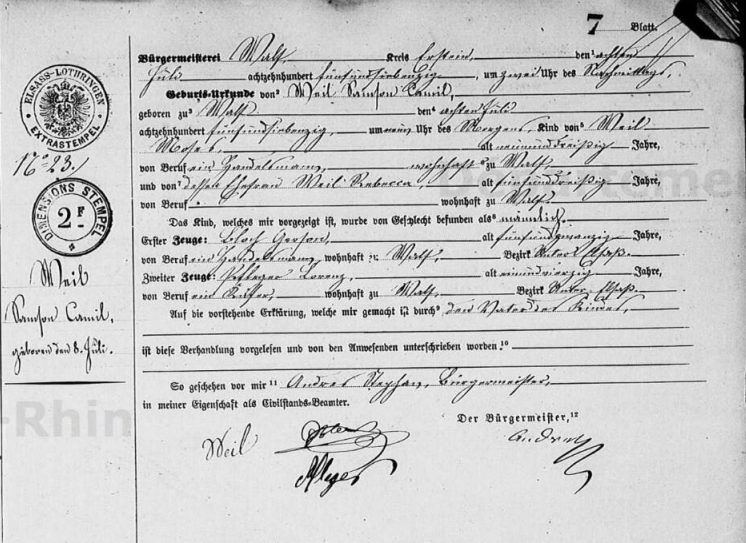 7 Blatt.
Bürgermeisterei Walf, Kreis Erstein, den¹ achten
Juli achtzehnhundert fünfundsiebenzig, um zwei Uhr des Nachmittags,
Geburts-Urkunde von² Weil Samson Camil,
geboren zu³ Walf den⁴ achten Juli
achtzehnhundert fünfundsiebenzig, um neun Uhr des Morgens, Kind von⁵ Weil
alt neununddreißig Jahre,
von Beruf ein Handelsmann, wohnhaft zu Walf,
und von⁷ dessen Ehefrau Weil Rebecca, alt fünfunddreißig Jahre,
von Beruf wohnhaft zu Walf.
Das Kind, welches mir vorgezeigt ist, wurde von Geschlecht befunden als⁸ männlich.
Erster Zeuge: Bloch Gerson, alt fünfundzwanzig Jahre,
von Beruf ein Handelsmann, wohnhaft zu Walf, Bezirk Unter-Elsaß.
Zweiter Zeuge: Lorenz, alt einundvierzig Jahre,
von Beruf ein Küfer, wohnhaft zu Walf, Bezirk Unter-Elsaß.
Auf die vorstehende Erklärung, welche mir gemacht ist durch⁹ den Vater des Kindes,
ist diese Verhandlung vorgelesen und von den Anwesenden unterschrieben worden.¹⁰
So geschehen vor mir¹¹ Andres Stephan, Bürgermeister,
in meiner Eigenschaft als Civilstands-Beamter.
Der Bürgermeister,¹²
Weil
Andres
ELSASS-LOTHRINGEN
EXTRASTEMPEL
Nº 23.
DIMENSIONS STEMPEL
2 F
Weil
Samson Camil,
geboren den 8. Juli.
-Rhin